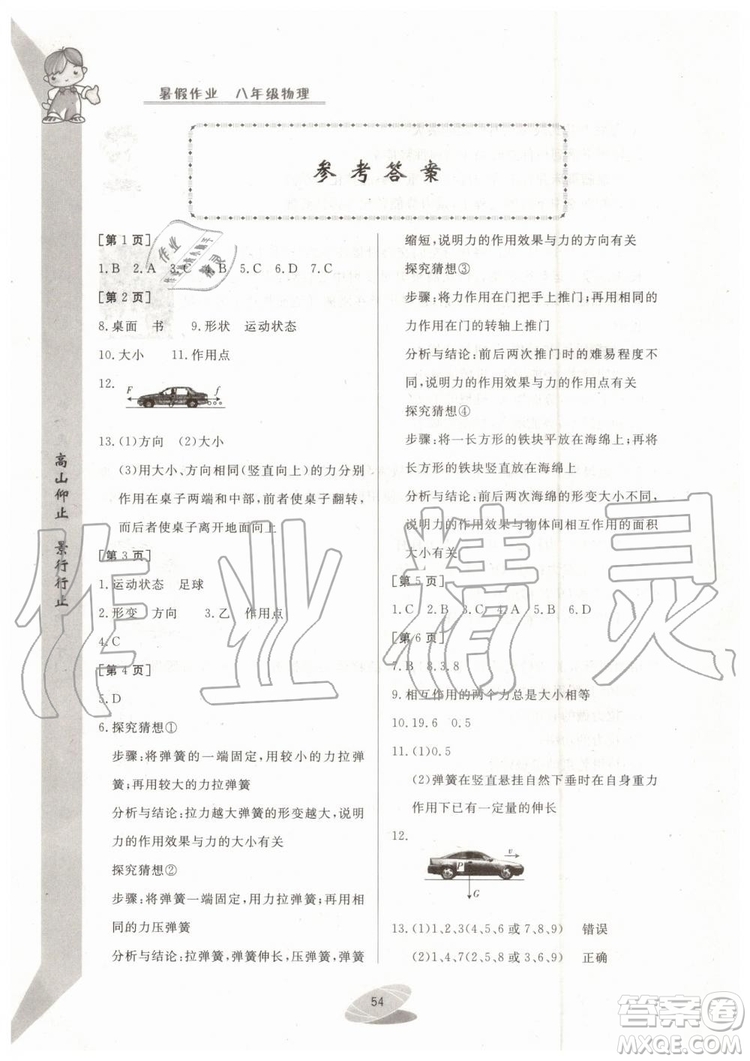 暑假作业 八年级物理
参考答案
[第1页]
1.B 2.A 3.C 4.B 5.C 6.D 7.C
[第2页]
8.桌面 书 9.形状 运动状态
10.大小 11.作用点
12.
F f
13.(1)方向 (2)大小
(3)用大小、方向相同(竖直向上)的力分别
作用在桌子两端和中部,前者使桌子翻转,
而后者使桌子离开地面向上
[第3页]
1.运动状态 足球
2.形变 方向 3.乙 作用点
4.C
[第4页]
5.D
6.探究猜想①
步骤:将弹簧的一端固定,用较小的力拉弹
簧;再用较大的力拉弹簧
分析与结论:拉力越大弹簧的形变越大,说
明力的作用效果与力的大小有关
探究猜想②
步骤:将弹簧一端固定,用力拉弹簧;再用相
同的力压弹簧
分析与结论:拉弹簧,弹簧伸长,压弹簧,弹簧
缩短,说明力的作用效果与力的方向有关
探究猜想③
步骤:将力作用在门把手上推门;再用同样的
力作用在门的转轴上推门
分析与结论:前后两次推门时的难易程度不
同,说明力的作用效果与力的作用点有关
探究猜想④
步骤:将一长方形的铁块平放在海绵上;再将
长方形的铁块竖直放在海绵上
分析与结论:前后两次海绵的形变大小不同,
说明力的作用效果与物体间相互作用的面积
大小有关
[第5页]
1.C 2.B 3.D 4.A 5.B 6.D
[第6页]
7.B 8.3.8
9.相互作用的两个力总是大小相等
10.19.6 0.5
11.(1)0.5
(2)弹簧在竖直悬挂自然下垂时在自身重力
作用下已有一定量的伸长
12.
v
P
G
13.(1)1,2,3(4,5,6或7,8,9) 错误
(2)1,4,7(2,5,8或3,6,9) 正确
高山仰止 景行行止
54
作业精灵
答案圈
MXQE.COM